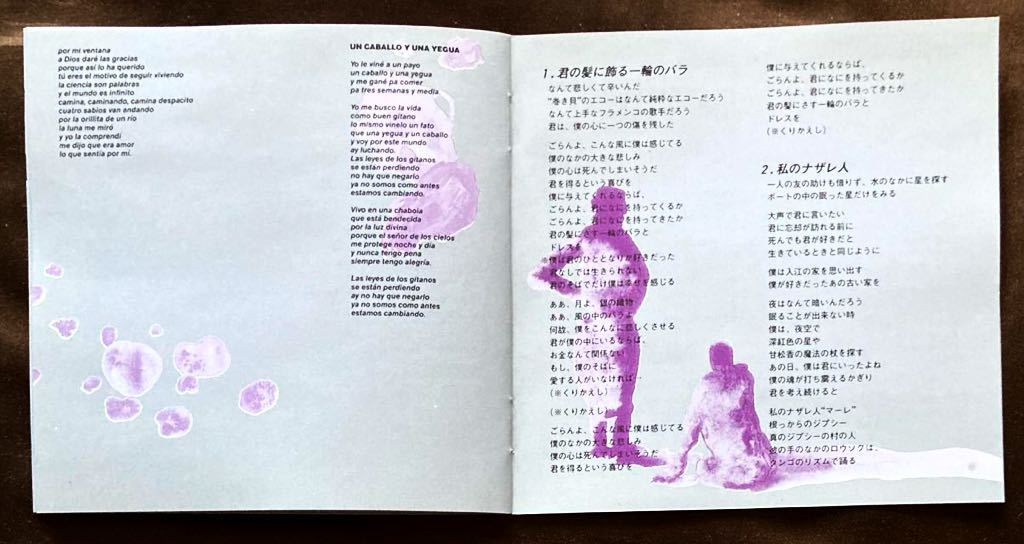 por mi ventana
a Dios daré las gracias
porque así lo ha querido
tú eres el motivo de seguir viviendo
la ciencia son palabras
y el mundo es infinito
camina, caminando, camina despacito
cuatro sabios van andando
por la orillita de un río
la luna me miró
y yo la comprendí
me dijo que era amor
lo que sentía por mí.
UN CABALLO Y UNA YEGUA
Yo le viné a un payo
un caballo y una yegua
y me gané pa comer
pa tres semanas y media
Yo me busco la vida
como buen gitano
lo mismo vinelo un fato
que una yegua y un caballo
y voy por este mundo
ay luchando.
Las leyes de los gitanos
se están perdiendo
no hay que negarlo
ya no somos como antes
estamos cambiando.
Vivo en una chabola
que está bendecida
por la luz divina
porque el señor de los cielos
me protege noche y día
y nunca tengo pena
siempre tengo alegría.
Las leyes de los gitanos
se están perdiendo
ay no hay que negarlo
ya no somos como antes
estamos cambiando.
1. 君の髪に飾る一輪のバラ
なんて悲しくて辛いんだ
"巻き貝"のエコーはなんて純粋なエコーだろう
なんて上手なフラメンコの歌手だろう
君は、僕の心に一つの傷を残した
ごらんよ、こんな風に僕は感じてる
僕のなかの大きな悲しみ
僕の心は死んでしまいそうだ
君を得るという喜びを
僕に与えてくれるならば、
ごらんよ、君になにを持ってくるか
ごらんよ、君になにを持ってきたか
君の髪にさす一輪のバラと
ドレスを
※僕は君のひととなりが好きだった
君なしでは生きられない
君のそばでだけ僕は幸せを感じる
ああ、月よ、銀の織物
ああ、風の中のバラよ
何故、僕をこんなに悲しくさせる
君が僕の中にいるならば、
お金なんて関係ない
もし、僕のそばに
愛する人がいなければ…
(※くりかえし)
(※くりかえし)
ごらんよ、こんな風に僕は感じてる
僕のなかの大きな悲しみ
僕の心は死んでしまいそうだ
君を得るという喜びを
僕に与えてくれるならば、
ごらんよ、君になにを持ってくるか
ごらんよ、君になにを持ってきたか
君の髪にさす一輪のバラと
ドレスを
(※くりかえし)
2. 私のナザレ人
一人の友の助けも借りず、水のなかに星を探す
ボートの中の眠った星だけをみる
大声で君に言いたい
君に忘却が訪れる前に
死んでも君が好きだと
生きているときと同じように
僕は入江の家を思い出す
僕が好きだったあの古い家を
夜はなんて暗いんだろう
眠ることが出来ない時
僕は、夜空で
深紅色の星や
甘松香の魔法の杖を探す
あの日、僕は君にいったよね
僕の魂が打ち震えるかぎり
君を考え続けると
私のナザレ人"マーレ"
根っからのジプシー
真のジプシーの村の人
彼の手のなかのロウソクは、
タンゴのリズムで踊る